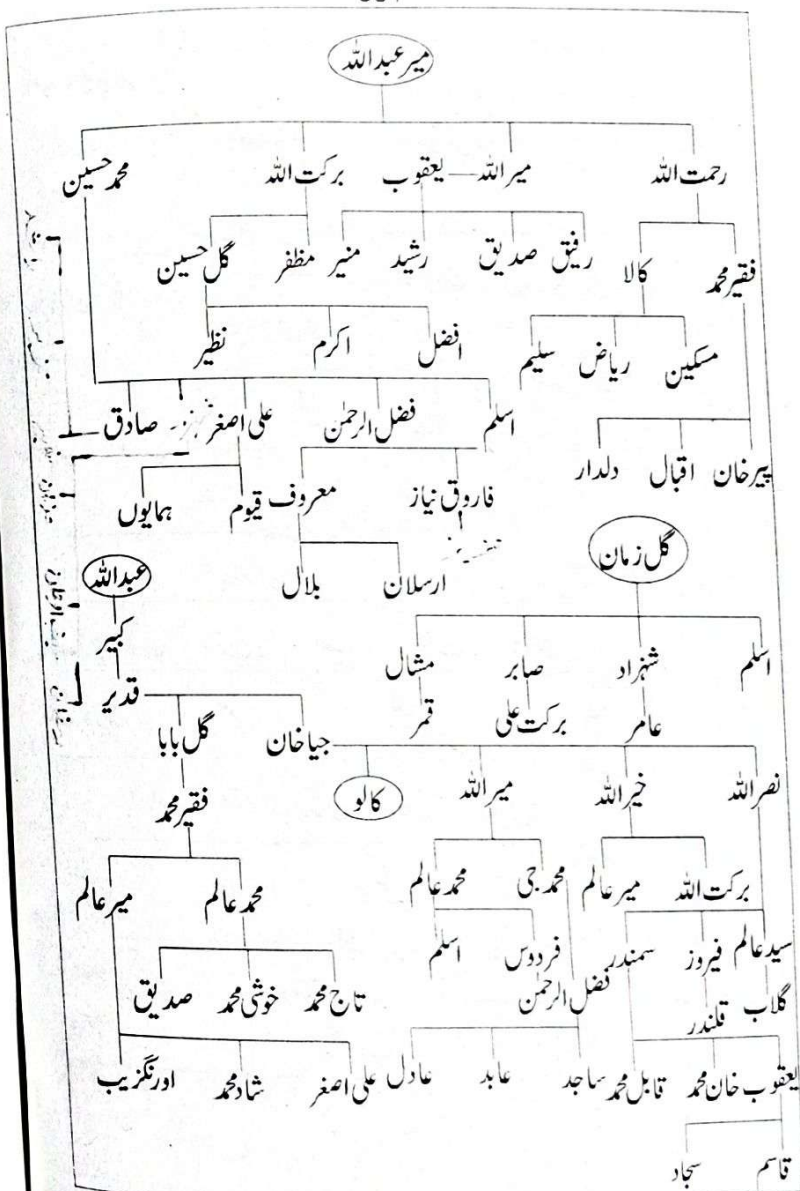 میر عبداللہ
رحمت اللہ میر اللہ یعقوب برکت اللہ محمد حسین
فقیر محمد کالا رفیق صدیق رشید منیر مظفر گل حسین
مسکین ریاض سلیم افضل اکرم نظیر
اسلم فضل الرحمٰن علی اصغر صادق
پیر خان اقبال دلدار فاروق نیاز معروف قیوم ہمایوں
گل زمان
ارسلان بلال عبداللہ
کبیر
اسلم شہزاد صابر مشال قدیر
عامر برکت علی قمر جیا خان گل بابا
نصر اللہ خیر اللہ میر اللہ کالو فقیر محمد
برکت اللہ میر عالم محمد جی محمد عالم محمد عالم میر عالم
سید عالم فیروز سمندر فردوس اسلم
گلاب قلندر فضل الرحمٰن تاج محمد خوشی محمد صدیق
یعقوب خان محمد قابل محمد ساجد عابد عادل علی اصغر شاد محمد اورنگزیب
قاسم سجاد